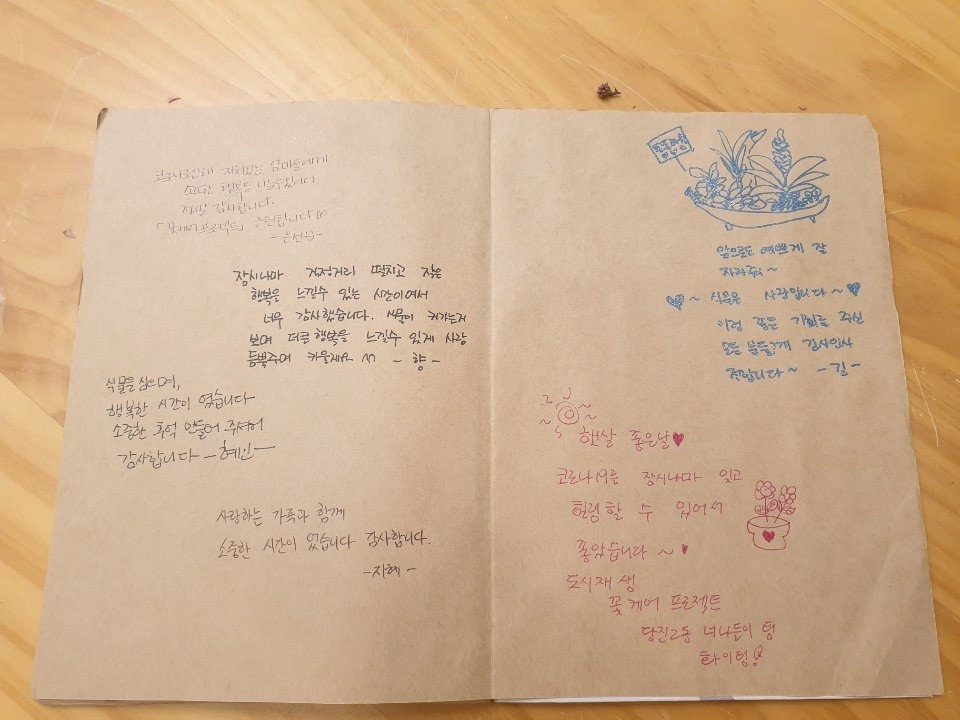 코로나로인해 지쳐있는 엄마들에게
소소한 행복을 나눌수있어서
정말 감사합니다.
「꽃케어프로젝트」 응원합니다♡
잠시나마 걱정거리 떨치고 작은
행복을 느낄수 있는 시간이여서
너무 감사했습니다. 식물이 커가는거
보며 더큰행복을 느낄수 있게 사랑
듬뿍주며 키울게요 ^^ - 향 -
식물을 심으며,
행복한 시간이 였습니다
소중한 추억 만들어 주셔서
감사합니다 - 혜인 -
사랑하는 가족과 함께
소중한 시간이 었습니다 감사합니다.
- 지혜 -
앞으로도 예쁘게 잘
자라줘~
♥~ 식물은 사랑입니다 ~♥
이런 좋은 기회를 주신
모든 분들께 감사인사
전합니다~ - 길 -
햇살 좋은날♥
코로나19를 잠시나마 잊고
힐링할 수 있어서
좋았습니다 ~ ♥
도시재생
꽃케어 프로젝트
당진2동 너나들이 팀
화이팅!